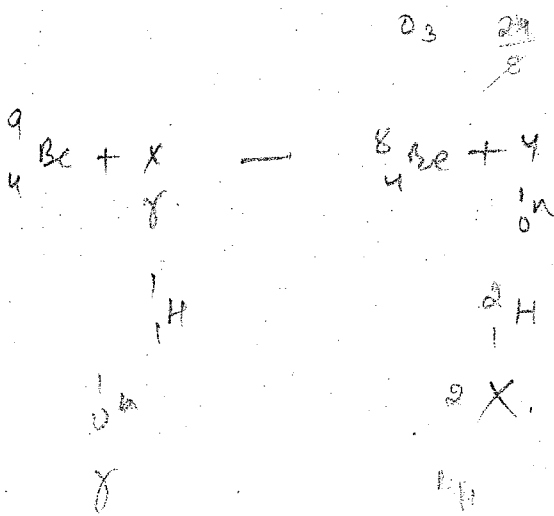 O₃ 24/8
⁹₄Be + X — ⁸₄Be + Y
γ ¹₀n
¹₁H ²₁H
¹₀n 2 X.
γ